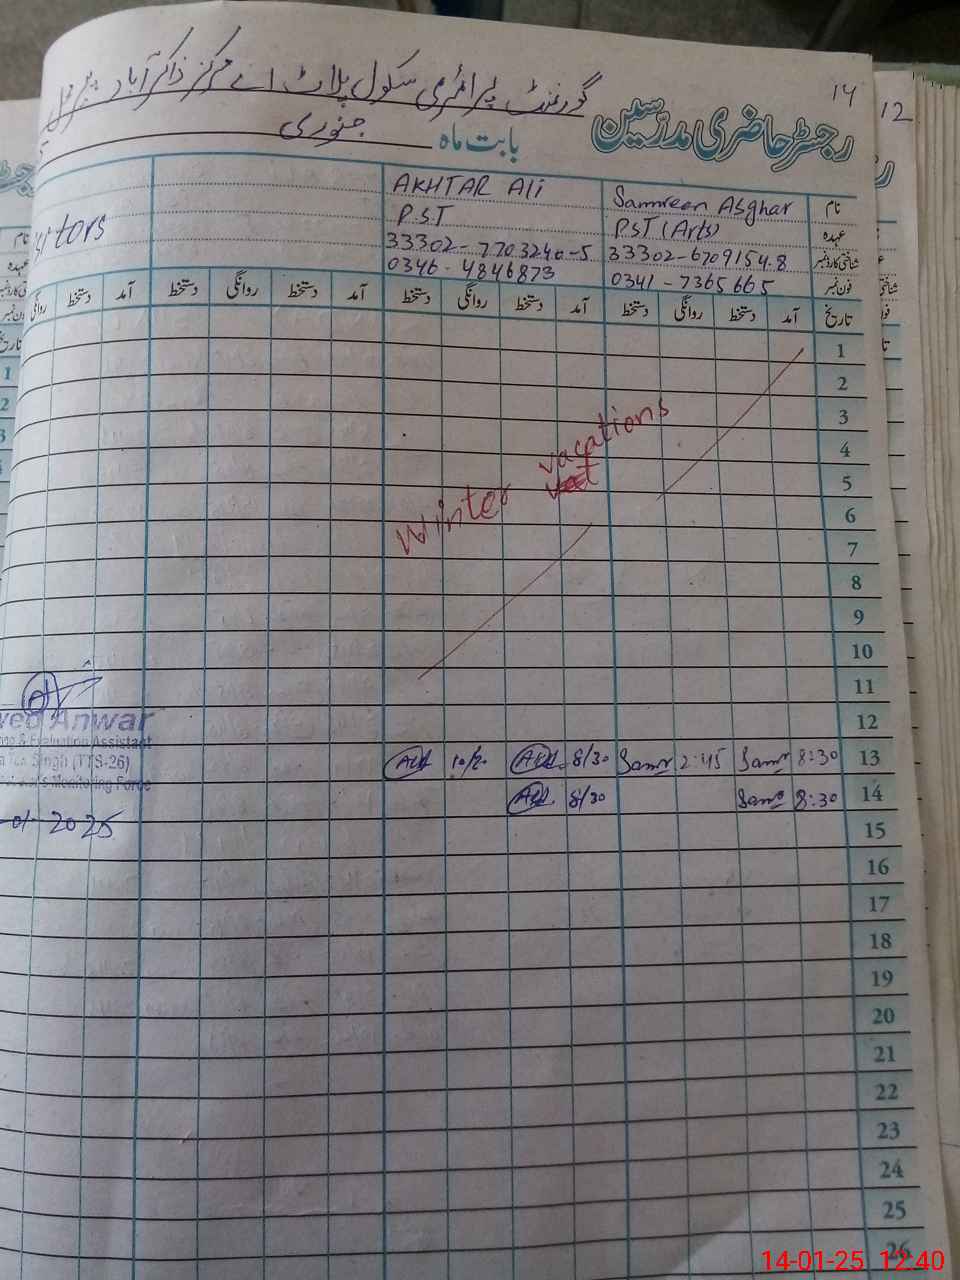 14
12
گورنمنٹ پرائمری سکول پلاٹ اے مرکز ذاکر آباد پیر محل
رجسٹر حاضری مدرسین
بابت ماہ جنوری
نام Samreen Asghar AKHTAR Ali
عہدہ PST (Arts) P.S.T
شناختی کارڈ نمبر 33302-6709154-8 33302-7703240-5
فون نمبر 0341-7365665 0346-4846873
تاریخ آمد دستخط روانگی دستخط آمد دستخط روانگی دستخط آمد دستخط روانگی دستخط آمد دستخط روانگی
1
2
3
4
5
6
7
8
9
10
11
12
Winter vacations
13 8:30 Samr 2:45 Samr 8/30
14 8:30 Samr 8/30
15
16
17
18
19
20
21
22
23
24
25
26
Anwar
& Evaluation Assistant
Singh (TTS-26)
Monitoring Force
01 2025
14-01-25 12:40